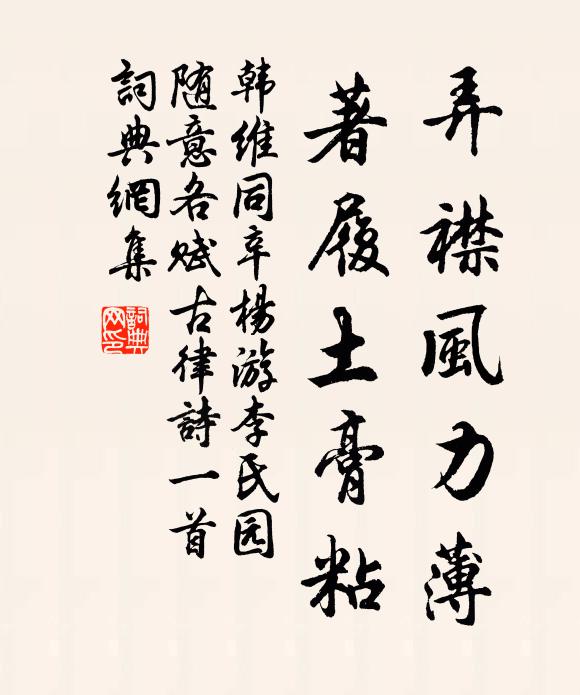 弄襟風力薄
著履土膏粘
韩維同辛楊游李氏园
随意各赋古律詩一首
詞典網集
詞典网印